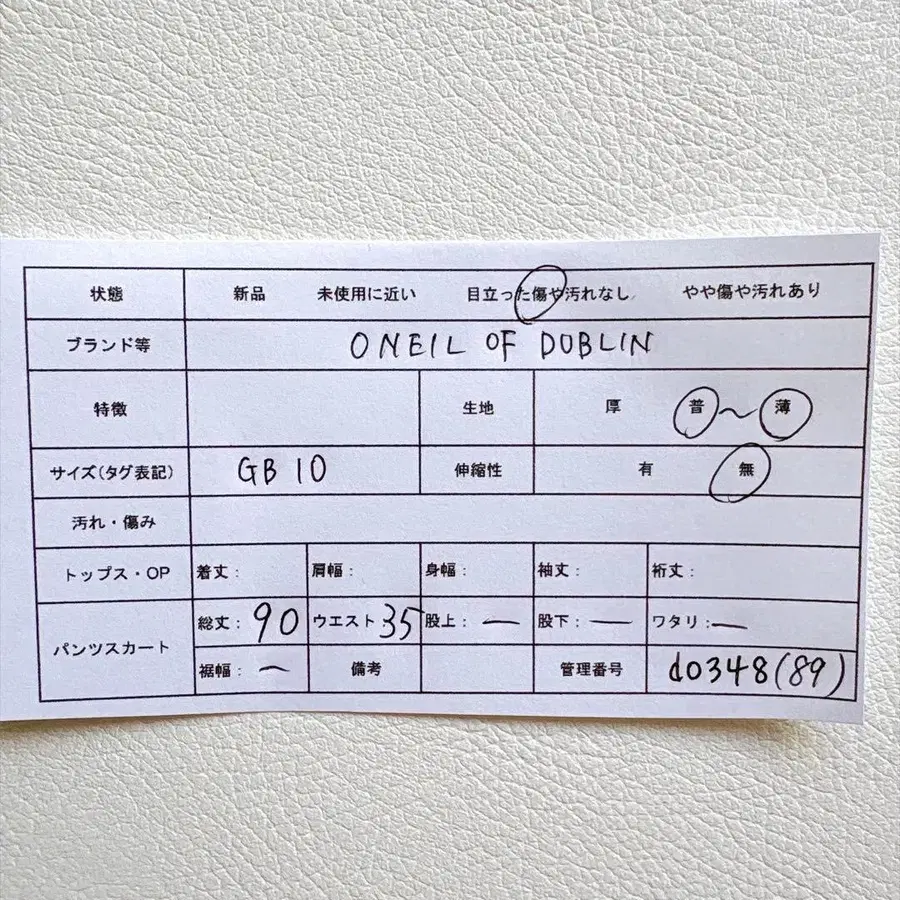 状態 新品 未使用に近い 目立った傷や汚れなし やや傷や汚れあり
ブランド等 ONEIL OF DUBLIN
特徴 生地 厚 普〜薄
サイズ(タグ表記) GB 10 伸縮性 有 無
汚れ・傷み
トップス・OP 着丈: 肩幅: 身幅: 袖丈: 裄丈:
パンツスカート 総丈: 90 ウエスト 35 股上: ー 股下: ー ワタリ: ー
裾幅: ー 備考 管理番号 d0348(89)